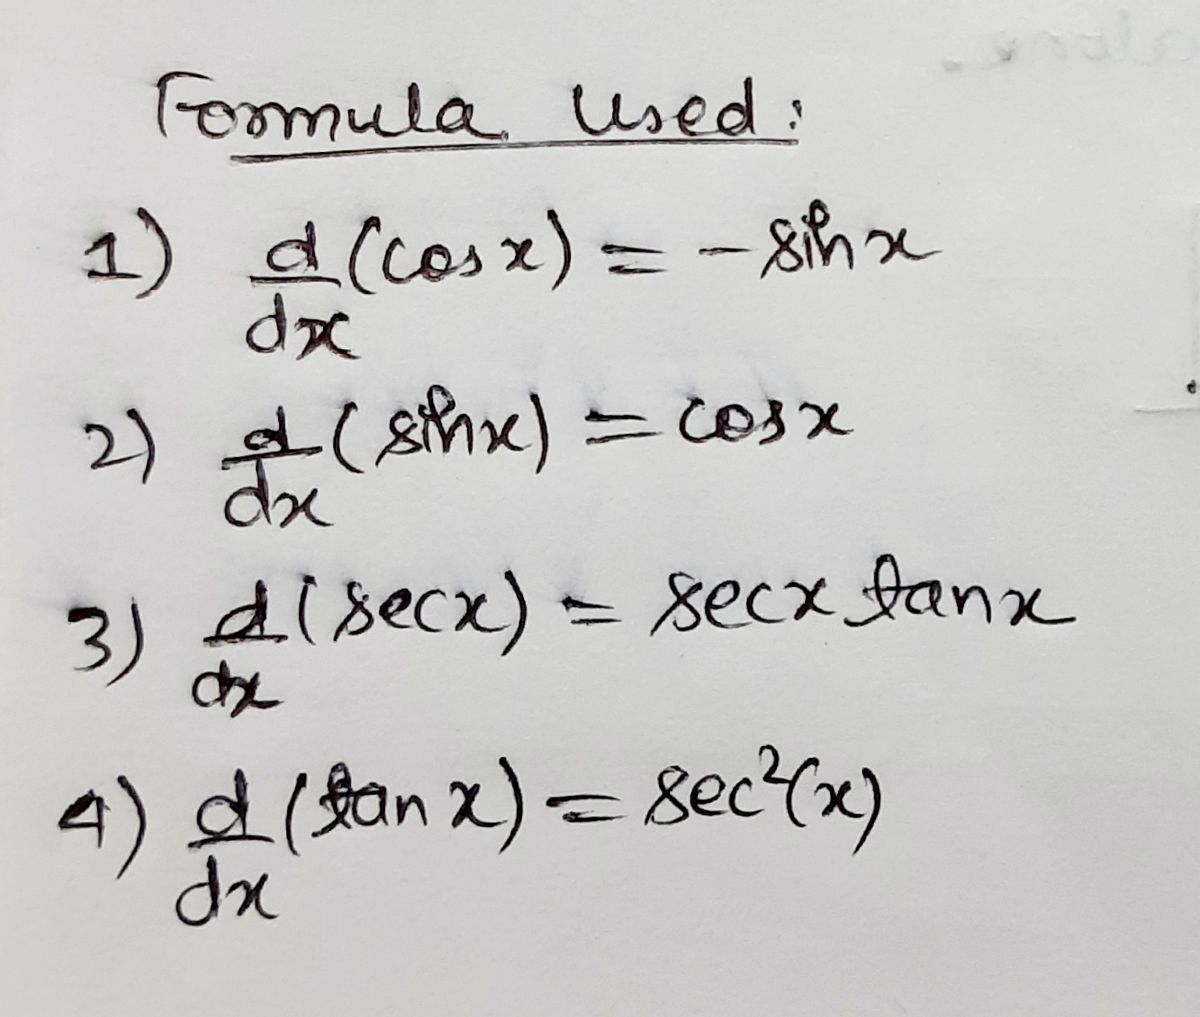 Formula Used:
1) d/dx (cos x) = - sin x
2) d/dx (sin x) = cos x
3) d/dx (sec x) = sec x tan x
4) d/dx (tan x) = sec²(x)